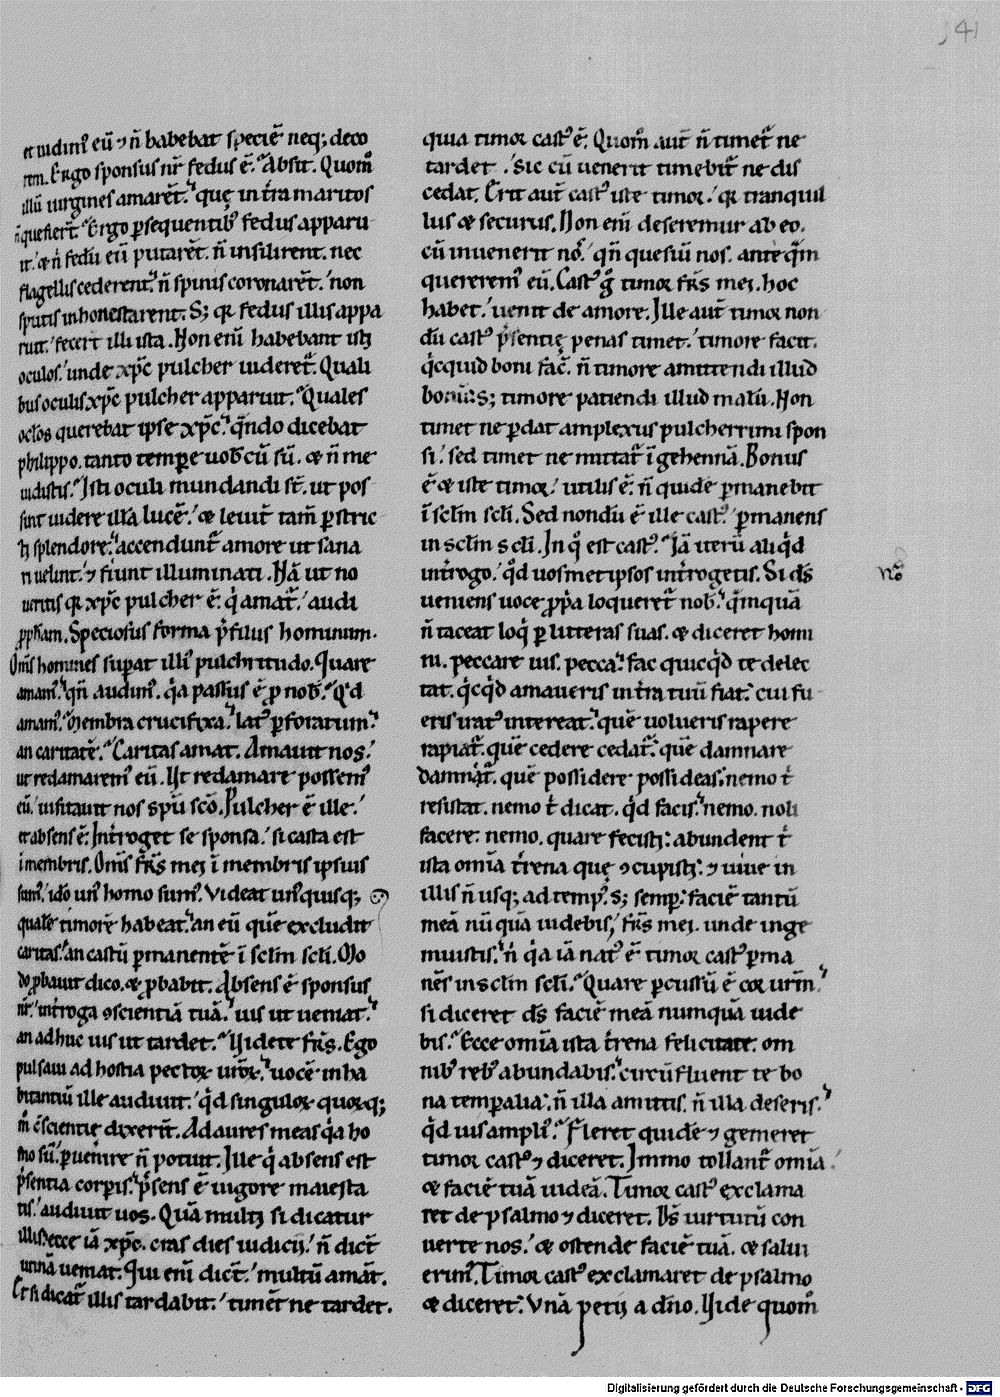 et uidim᷒ eū ⁊ ñ habebat speciē neq; deco
rem. Ergo sponsus nr̄ fedus ē. Absit. Quom̄
illū uirgines amarēt. quę in tr̄a maritos
ñ quesierr̄t. Ergo ꝑsequentib᷒ fedus apparu
it. & ñ fedū eū putarēt. ñ insilirent. nec
flagellis cederent. ñ spinis coronarēt. non
sputis inhonestarent. S; qr fedus illis appa
ruit. fecert̄ illi ista. Non eni habebant istꝫ
oculos. unde xp̄c pulcher uideret̄. Quali
bus oculis xp̄c pulcher apparuit. Quales
oc̄los querebat ipse xp̄c. q̄ndo dicebat
philippo. tanto tempe uob̄cū sū. & ñ me
uidistis. Isti oculi mundandi st̄. ut pos
sint uidere illā lucē. & leuit̄ tam̄ ꝑstric
tꝫ splendore. accendunt̄ amore ut sana
ri uelint. ⁊ fiunt illuminati. Nā ut no
ueritis qr xp̄c pulcher ē. q̇ amat̄. audi
ꝓph̄am. Speciosus forma p̄ filiis hominum.
Om̄s homines supat illi᷒ pulchritudo. Quare
amam᷒. qñ audim᷒. q̇a passus ē ꝓ nob̄. Q̇d
amam᷒. Membra crucifixa. lat᷒ ꝑforatum.
an caritatē. Caritas amat. Amauit nos.
ut redamarem᷒ eū. Ut redamare possem᷒
eū. uisitauit nos spū sc̄o. Pulcher ē ille.
et absens ē. Int̄roget se sponsa. si casta est
ī membris. Om̄s fr̄s mei ī membris ipsius
sum᷒. idō un᷒ homo sum᷒. Videat un᷒quisq;
qualē timorē habeat. an eū quē excludit
caritas. an castū ꝑmanentē ī sc̄lm sc̄li. Mo
do ꝓbauit dico. & ꝓbabit. Absens ē sponsus
nr̄. int̄roga ɔscientiā tuā. uis ut ueniat.
an adhuc uis ut tardet. Uidete fr̄s. Ego
pulsaui ad hostia pectoꝝ uroꝝ. uocē inha
bitantiū ille audiuit. q̇d singuloꝝ quoꝝq;
ɔscientię dixerit̄. Ad aures meas q̇a ho
mo sū. ꝑuenire ñ potuit. Ille q̇ absens est
p̄sentia corpis. p̄sens ē uigore maiesta
tis. audiuit uos. Quā multꝫ si dicatur
illis. ecce iā xp̄c. cras dies iudicij. ñ dict̄
utinā ueniat. Qui eni dict̄. multū amāt.
Et si dicat̄ illis tardabit. timēt ne tardet.
quia timor cast᷒ ē. Quom̄ aut̄ ñ timet̄ ne
tardet. Sic cū uenerit timebit̄ ne dis
cedat. Erit aut̄ cast᷒ iste timor. qr tranquil
lus & securus. Non eni deseremur ab eo.
cū inuenerit nos. qñ quesiū nos. anteq̄m
quererem᷒ eū. Cast᷒ g̊ timor fr̄s mei. hoc
habet. uenit de amore. Ille aut̄ timor non
dū cast᷒ p̄sentię penas timet. timore facit.
q̇cquid boni fac̄. ñ timore amittendi illud
bonū. s; timore patiendi illud malū. Non
timet ne ꝑdat amplexus pulcherrimi spon
si. sed timet ne mittat̄ ī gehennā. Bonus
ē & iste timor. utilis ē. ñ quidē ꝑmanebit
ī sc̄lm sc̄li. Sed nondū ē ille cast᷒. ꝑmanens
in sc̄lm sc̄li. In q̊ est cast᷒. Iā iterū aliq̇d
int̄rogo. q̇d uosmetipsos int̄rogetis. Si ds̄
ueniens uoce ꝓpa loqueret̄ nob̄. q̄mquā
ñ taceat loq̇ ꝑ litteras suas. & diceret homi
ni. peccare uis. pecca. fac quicq̇d te delec
tat. q̇cq̇d amaueris in tr̄a tuū fiat. cui fu
eris irat᷒ intereat. quē uolueris rapere
rapiat̄. quē cedere cedat̄. quē damnare
damnat̄. quē possidere possideas. nemo t̄
resistat. nemo t̄ dicat. q̇d facis. nemo. noli
facere. nemo. quare fecistꝫ. abundent t̄
ista omīa tr̄ena quę ɔcupistꝫ. ⁊ uiue in
illis ñ usq; ad temp᷒. s; semp. faciē tantū
meā nūquā uidebis. fr̄s mei. unde inge
muistis. ñ q̇a iā nat᷒ ē timor cast᷒ ꝑma
nēs in sc̄lm sc̄li. Quare ꝑcussū ē cor urm̄.
si diceret ds̄ faciē meā numquā uide
bis. Ecce omīa ista tr̄ena felicitate. om
nib᷒ reb᷒ abundabis. circūfluent te bo
na tempalia. ñ illa amittis. ñ illa deseris.
q̇d uis ampli᷒. Fleret quidē ⁊ gemeret
timor cast᷒ ⁊ diceret. Immo tollant̄ omīa.
& faciē tuā uideā. Timor cast᷒ exclama
ret de psalmo ⁊ diceret. Ds̄ uirtutū con
uerte nos. & ostende faciē tuā. & salui
erim᷒. Timor cast᷒ exclamaret de psalmo
& diceret. Vnā petij a dn̄o. Uide quom̄
Digitalisierung gefördert durch die Deutsche Forschungsgemeinschaft - DFG